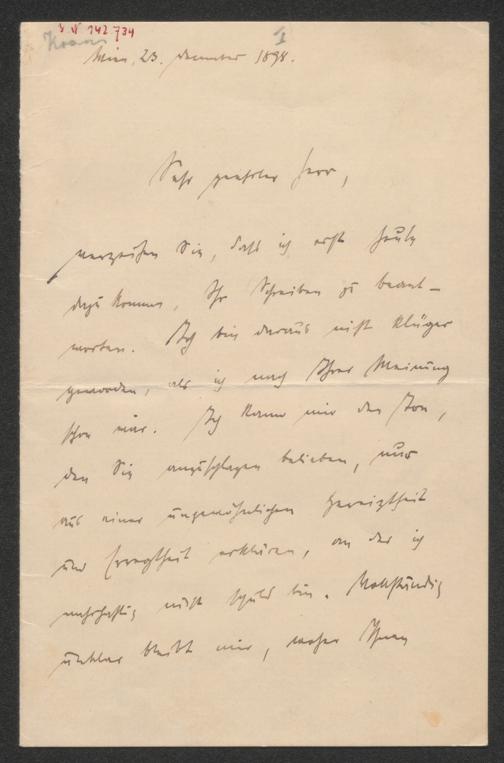 I N 142 734
I
Kraus
Wien, 23. December 1898.
Sehr geehrter Herr,
verzeihen Sie, daß ich erst heute
dazu komme, Ihr Schreiben zu beant-
worten. Ich bin daraus nicht klüger
geworden, als ich nach Ihrer Meinung
schon war. Ich kann mir den Ton,
den Sie anzuschlagen belieben, nur
aus einer ungewöhnlichen Gereiztheit
und Erregtheit erklären, an der ich
wahrhaftig nicht schuld bin. Vollständig
unklar bleibt mir, woher Ihnen